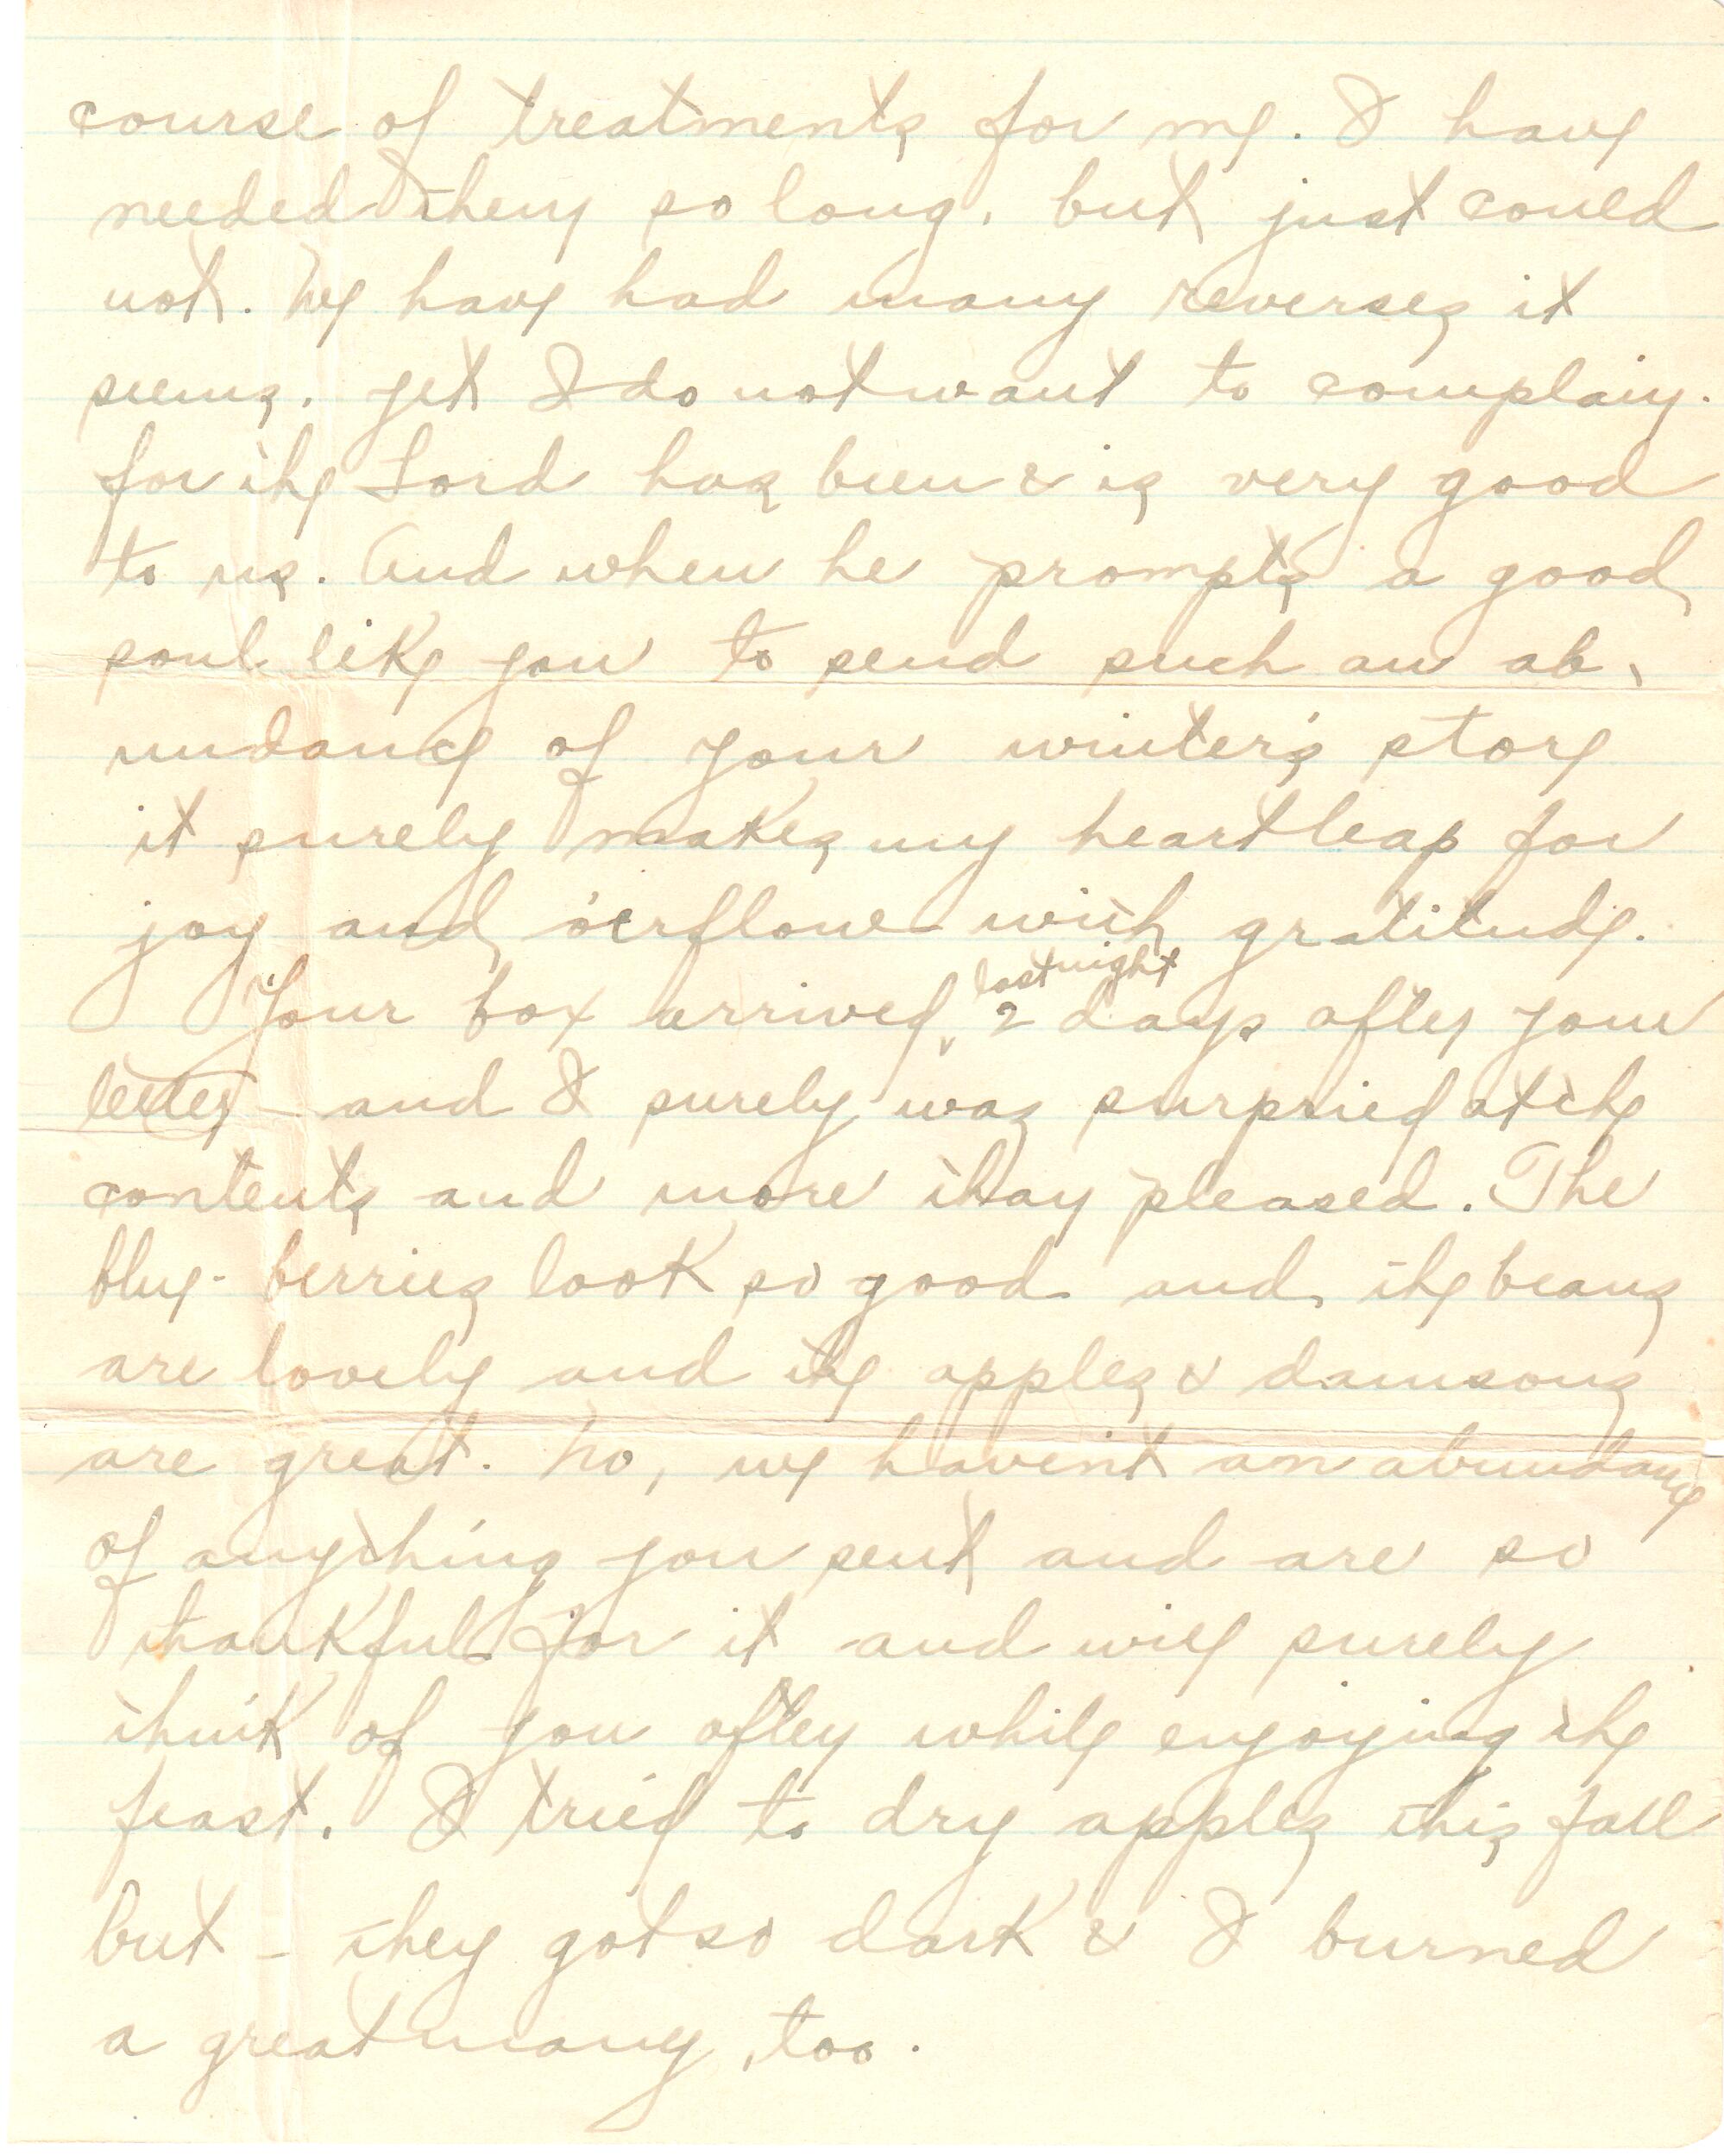 course of treatments for me. I have
needed them so long, but just could
not. We have had many reverses it
seems. Yet I do not want to complain.
for the Lord has been & is very good
to us. And when he prompts a good
soul like you to send such an ab-
undance of your winter's store
it surely makes my heart leap for
joy and o'erflow with gratitude.
last night
Your box arrived, 2 days after your
letter - and I surely was surprised at the
contents and more than pleased. The
blue-berries look so good and the beans
are lovely and the apples & damsons
are great. No, we haven't an abundance
of anything you sent and are so
thankful for it and will surely
think of you often while enjoying the
feast. I tried to dry apples this fall
but - they got so dark & I burned
a great many, too.